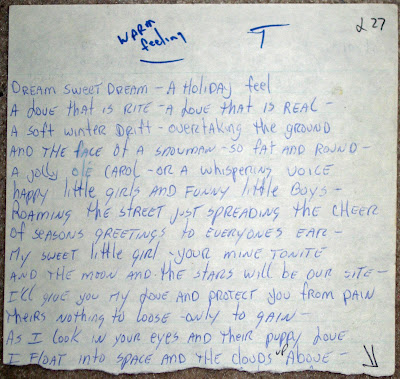 WARM
feeling
T
27
DREAM SWEET DREAM - A HOLIDAY feel
A LOVE THAT IS RITE - A LOVE THAT IS REAL -
A SOFT WINTER DRIFT - OVERTAKING THE GROUND
AND THE FACE OF A SNOWMAN - SO FAT AND ROUND -
A JOLLY OLE CAROL - OR A WHISPERING VOICE
HAPPY little girls AND FUNNY little BOYS -
ROAMING THE STREET JUST SPREADING THE CHEER
Of SEASONS GREETINGS TO EVERYONES EAR -
MY SWEET little girl - YOUR MINE TONITE
AND THE MOON AND THE STARS WILL BE OUR SITE -
I'll GIVE YOU MY LOVE AND PROTECT YOU FROM PAIN
THEIRS NOTHING TO LOOSE - ONLY TO GAIN -
AS I LOOK IN YOUR EYES AND THEIR PUPPY LOVE
I FLOAT INTO SPACE AND THE CLOUDS UP ABOVE -